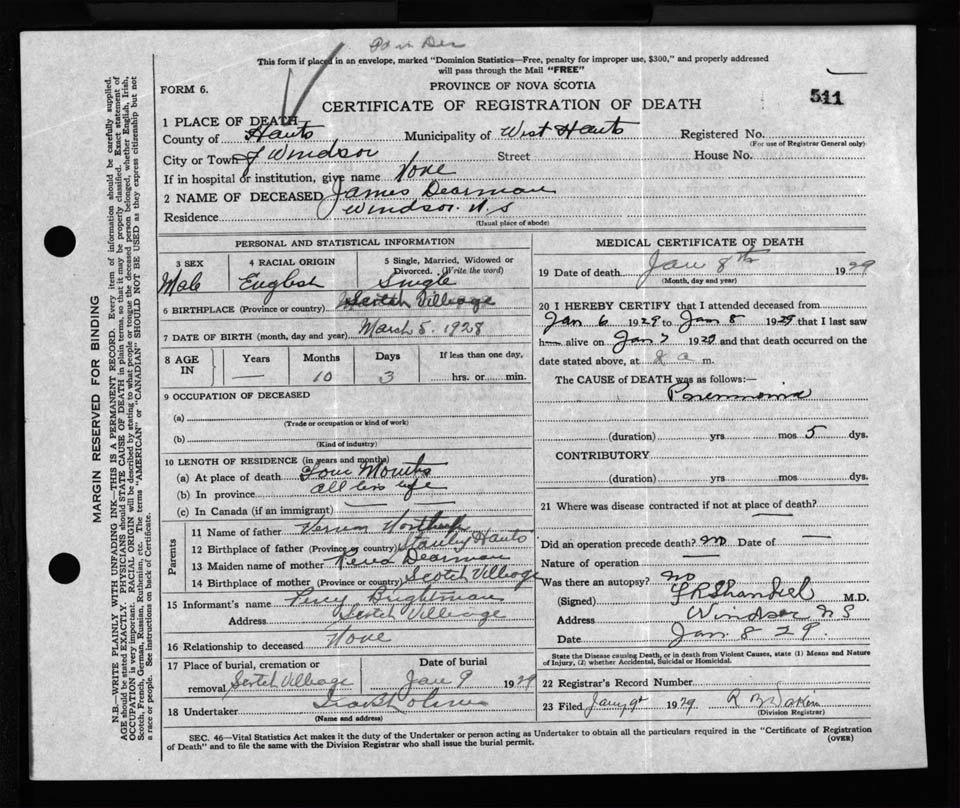 This form if placed in an envelope, marked "Dominion Statistics—Free, penalty for improper use, $300," and properly addressed
will pass through the Mail "FREE"
FORM 6.
PROVINCE OF NOVA SCOTIA
511
CERTIFICATE OF REGISTRATION OF DEATH
1 PLACE OF DEATH
County of Hants Municipality of West Hants Registered No.
(For use of Registrar General only)
City or Town of Windsor Street House No.
If in hospital or institution, give name None
2 NAME OF DECEASED James Dearman
Residence Windsor. N.S
(Usual place of abode)
PERSONAL AND STATISTICAL INFORMATION
3 SEX
Male
4 RACIAL ORIGIN
English
5 Single, Married, Widowed or
Divorced. (Write the word)
Single
6 BIRTHPLACE (Province or country) Scotch Village
7 DATE OF BIRTH (month, day and year) March 5. 1928
8 AGE IN
Years Months Days If less than one day,
— 10 3 hrs. or min.
9 OCCUPATION OF DECEASED
(a)
(Trade or occupation or kind of work)
(b)
(Kind of industry)
10 LENGTH OF RESIDENCE (in years and months)
(a) At place of death Four Months
(b) In province all his life
(c) In Canada (if an immigrant)
Parents
11 Name of father Vernon
12 Birthplace of father (Province or country) Stanley Hants
13 Maiden name of mother Dearman
14 Birthplace of mother (Province or country) Scotch Village
15 Informant's name Percy Brightman
Address Scotch Village
16 Relationship to deceased None
17 Place of burial, cremation or
removal Scotch Village
Date of burial
Jan 9 1929
18 Undertaker
(Name and address)
MEDICAL CERTIFICATE OF DEATH
19 Date of death Jan 8th 1929
(Month, day and year)
20 I HEREBY CERTIFY that I attended deceased from
Jan 6 1929 to Jan 8 1929 that I last saw
h alive on Jan 7 1929 and that death occurred on the
date stated above, at 8 a m.
The CAUSE of DEATH was as follows:—
Pneumonia
(duration) yrs mos 5 dys.
CONTRIBUTORY
(duration) yrs mos dys.
21 Where was disease contracted if not at place of death?
Did an operation precede death? no Date of —
Nature of operation
Was there an autopsy? no
(Signed) M.D.
Address Windsor N S
Date Jan. 8 29.
State the Disease causing Death, or in death from Violent Causes, state (1) Means and Nature
of Injury, (2) whether Accidental, Suicidal or Homicidal.
22 Registrar's Record Number
23 Filed 1929
(Division Registrar)
SEC. 46—Vital Statistics Act makes it the duty of the Undertaker or person acting as Undertaker to obtain all the particulars required in the "Certificate of Registration
of Death" and to file the same with the Division Registrar who shall issue the burial permit.
(OVER)
MARGIN RESERVED FOR BINDING
N.B.—WRITE PLAINLY WITH UNFADING INK—THIS IS A PERMANENT RECORD. Every item of information should be carefully supplied.
AGE should be stated EXACTLY. PHYSICIANS should STATE CAUSE OF DEATH in plain terms, so that it may be properly classified. Exact statement of
OCCUPATION is very important. RACIAL ORIGIN will be described by stating to what people or tongue the deceased person belonged, whether English, Irish,
Scotch, French, German, Russian, Ruthenian, etc. The terms "AMERICAN" or "CANADIAN" SHOULD NOT BE USED as they express citizenship but not
a race or people. See instructions on back of Certificate.